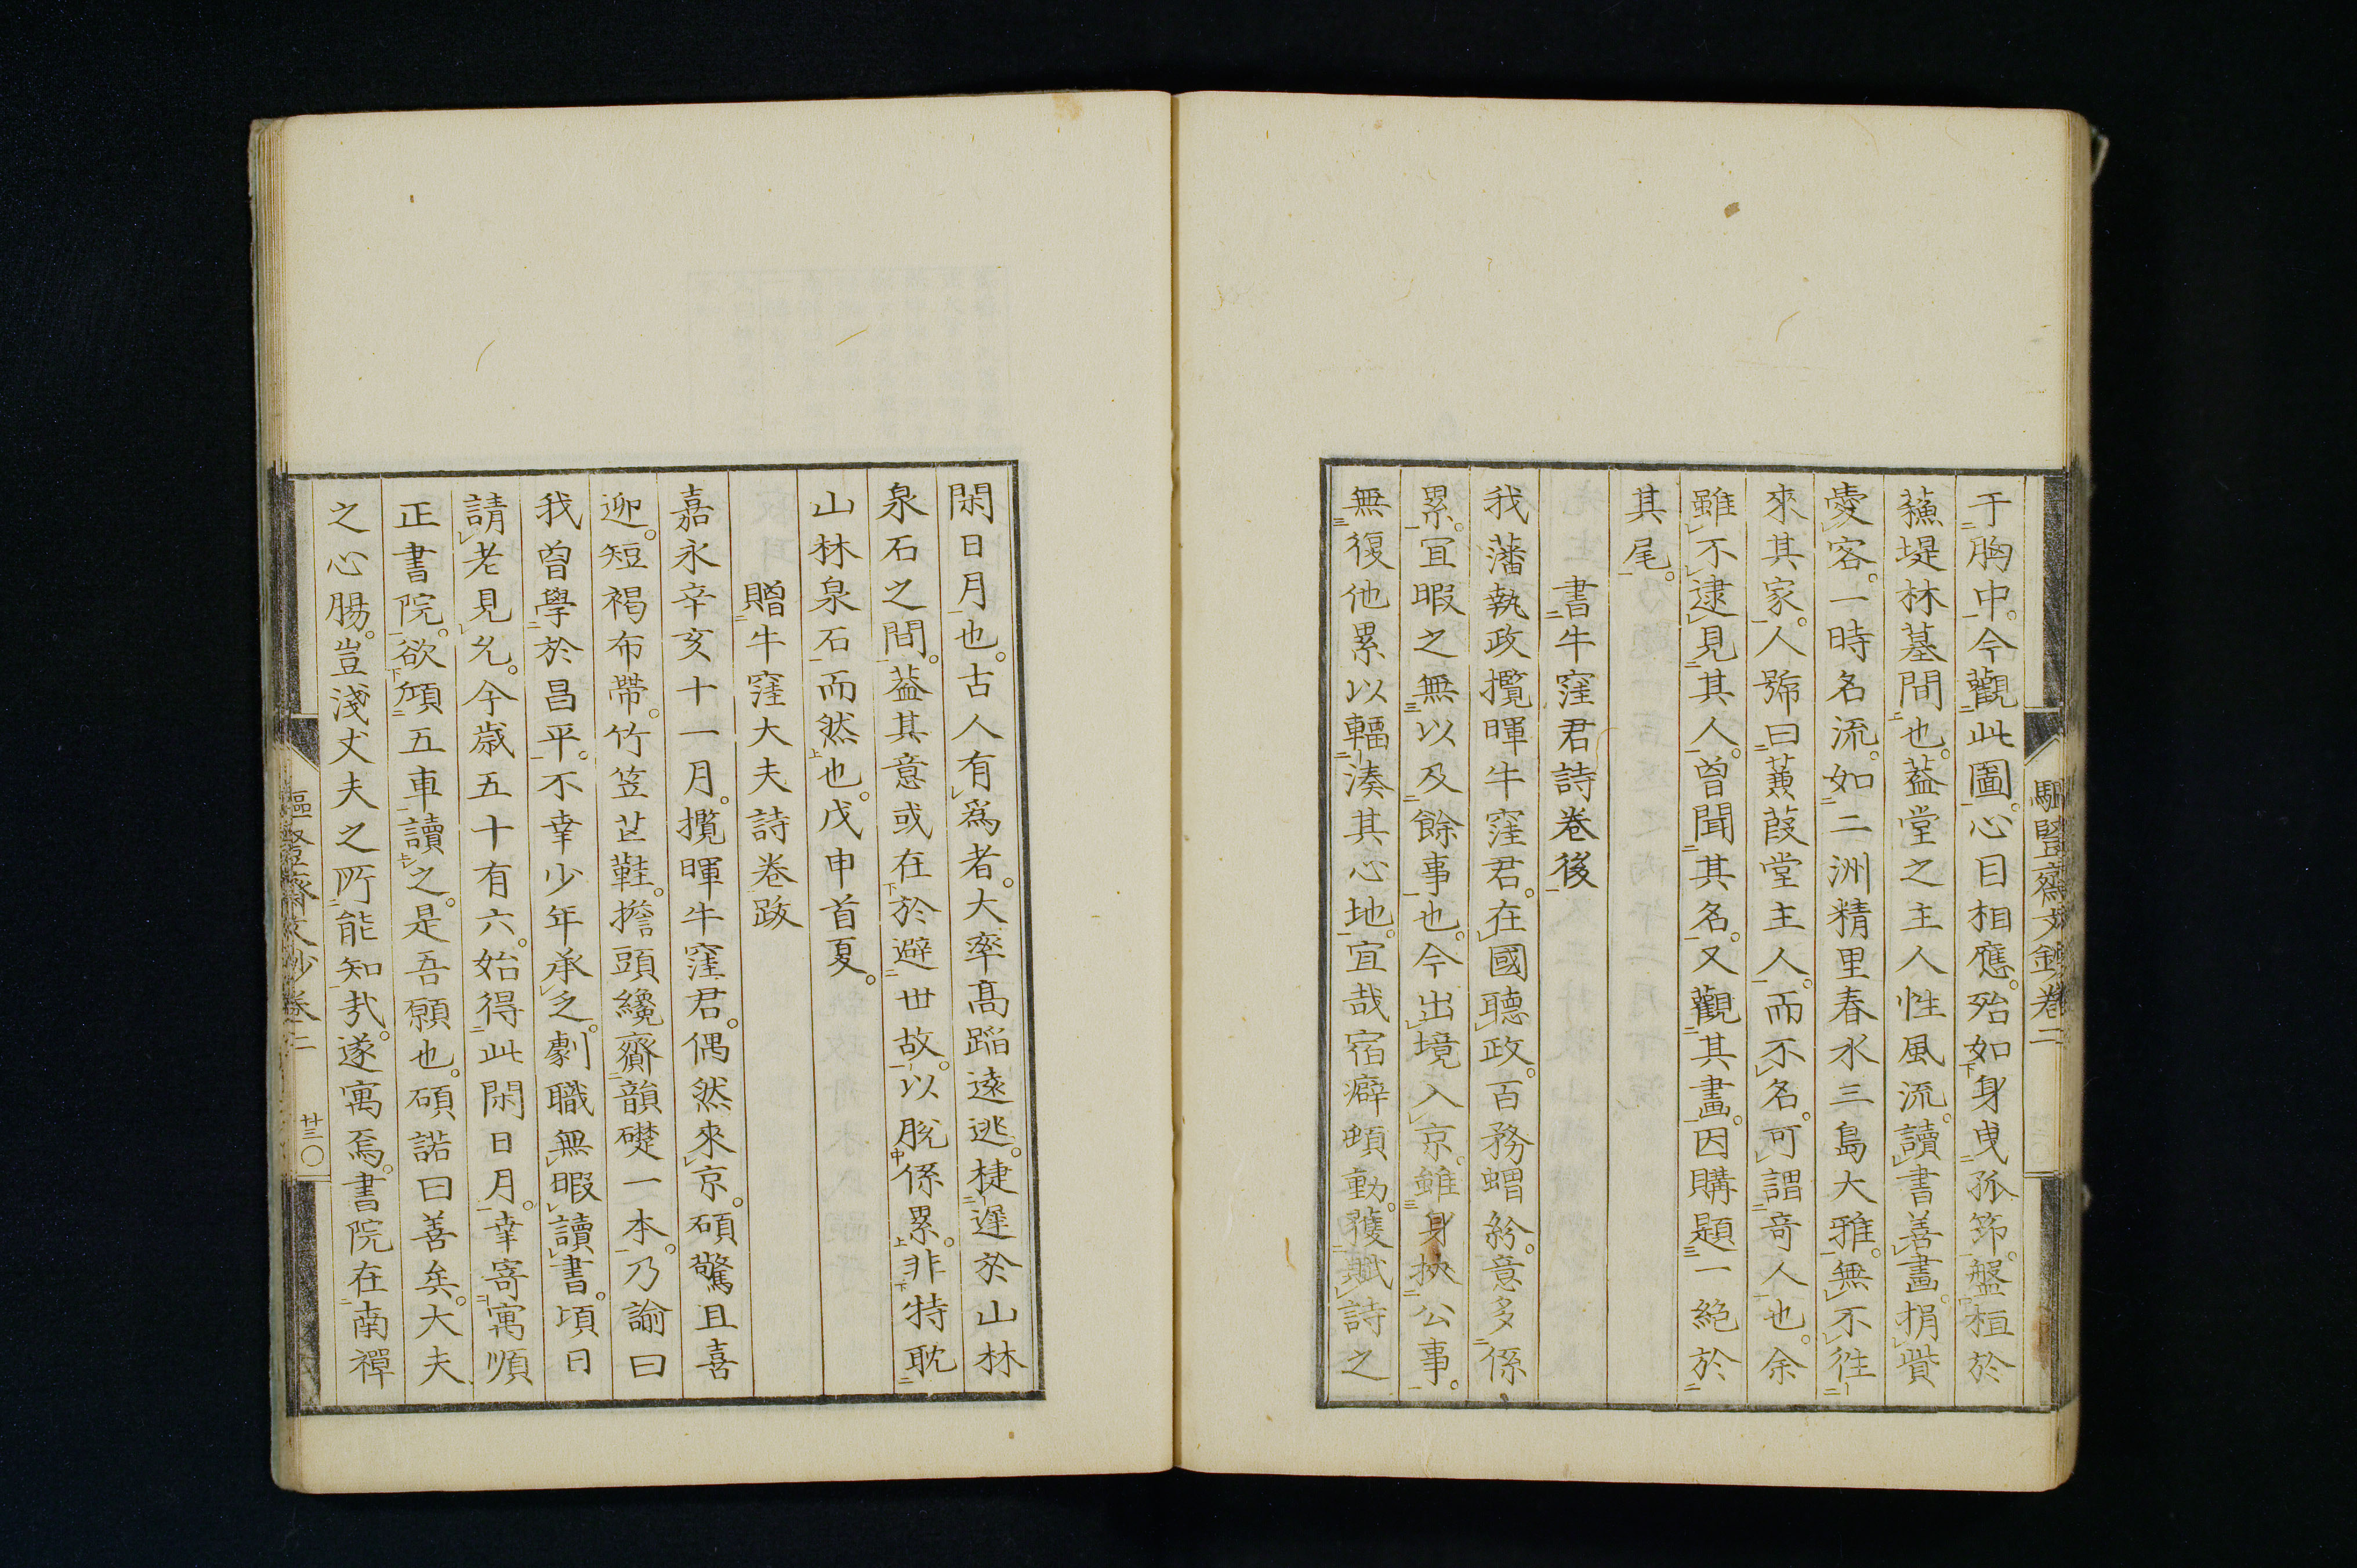 驅豎齋文鈔卷二
于胸中。今觀此圖。心目相應。殆如身曳孤筇。盤桓於
蘓堤林墓間也。蓋堂之主人性風流。讀書善畫。捐貲
愛客。一時名流。如二洲精里春水三島大雅。無不徃
來其家。人號曰蒹葭堂主人。而不名。可謂奇人也。余
雖不逮見其人。曽聞其名。又觀其畫。因購題一絶於
其尾。
書牛窪君詩卷後
我藩執政攬暉牛窪君。在國聽政。百務蝟紛。意多係
累。宜暇之無以及餘事也。今出境入京。雖身挾公事。
無復他累以輻湊其心地。宜哉宿癖頓動。獲賦詩之
閑日月也。古人有爲者。大率髙蹈遠逃。棲遲於山林
泉石之間。蓋其意或在於避世故。以脫係累。非特耽
山林泉石而然也。戊申首夏。
贈牛窪大夫詩卷跋
嘉永辛亥十一月。攬暉牛窪君。偶然來京。碩驚且喜
迎。短褐布帶。竹笠芒鞋。擔頭纔齎韻礎一本。乃諭曰
我曽學於昌平。不幸少年承乏。劇職無暇讀書。頃日
請老見允。今歳五十有六。始得此閑日月。幸寄寓順
正書院。欲傾五車讀之。是吾願也。碩諾曰善矣。大夫
之心腸。豈淺丈夫之所能知哉。遂寓焉。書院在南禪
驅豎齋文鈔卷二 廿三〇